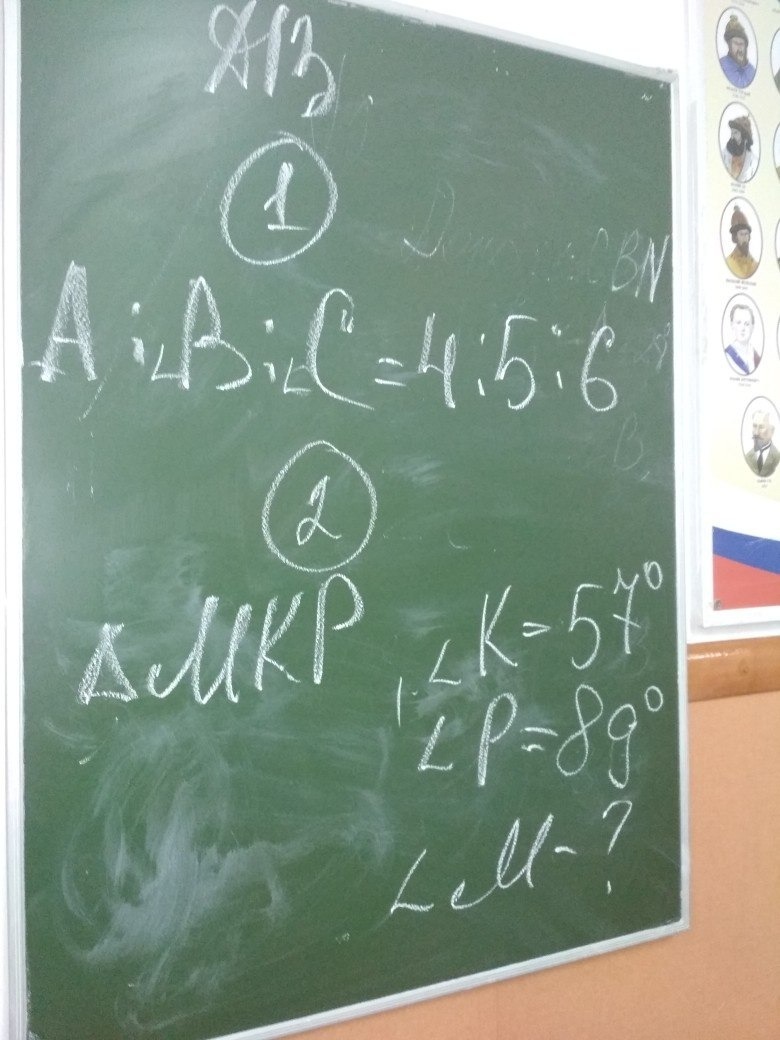 ДЗ
1
∠A:∠B:∠C=4:5:6
2
ΔMKP
∠K=57°
∠P=89°
∠M-?